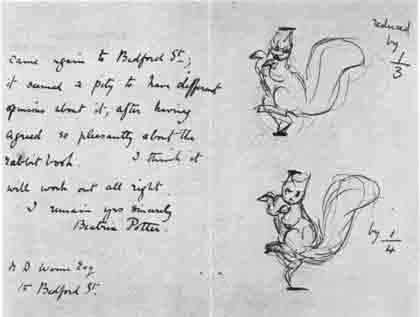 came again to Bedford St;
it seemed a pity to have different
opinions about it, after having
agreed so pleasantly about the
rabbit book. I think it
will work out all right.
I remain yrs sincerely
Beatrix Potter.
N D Warne Esq
15 Bedford St.
reduced
by
1/3
by 1/4